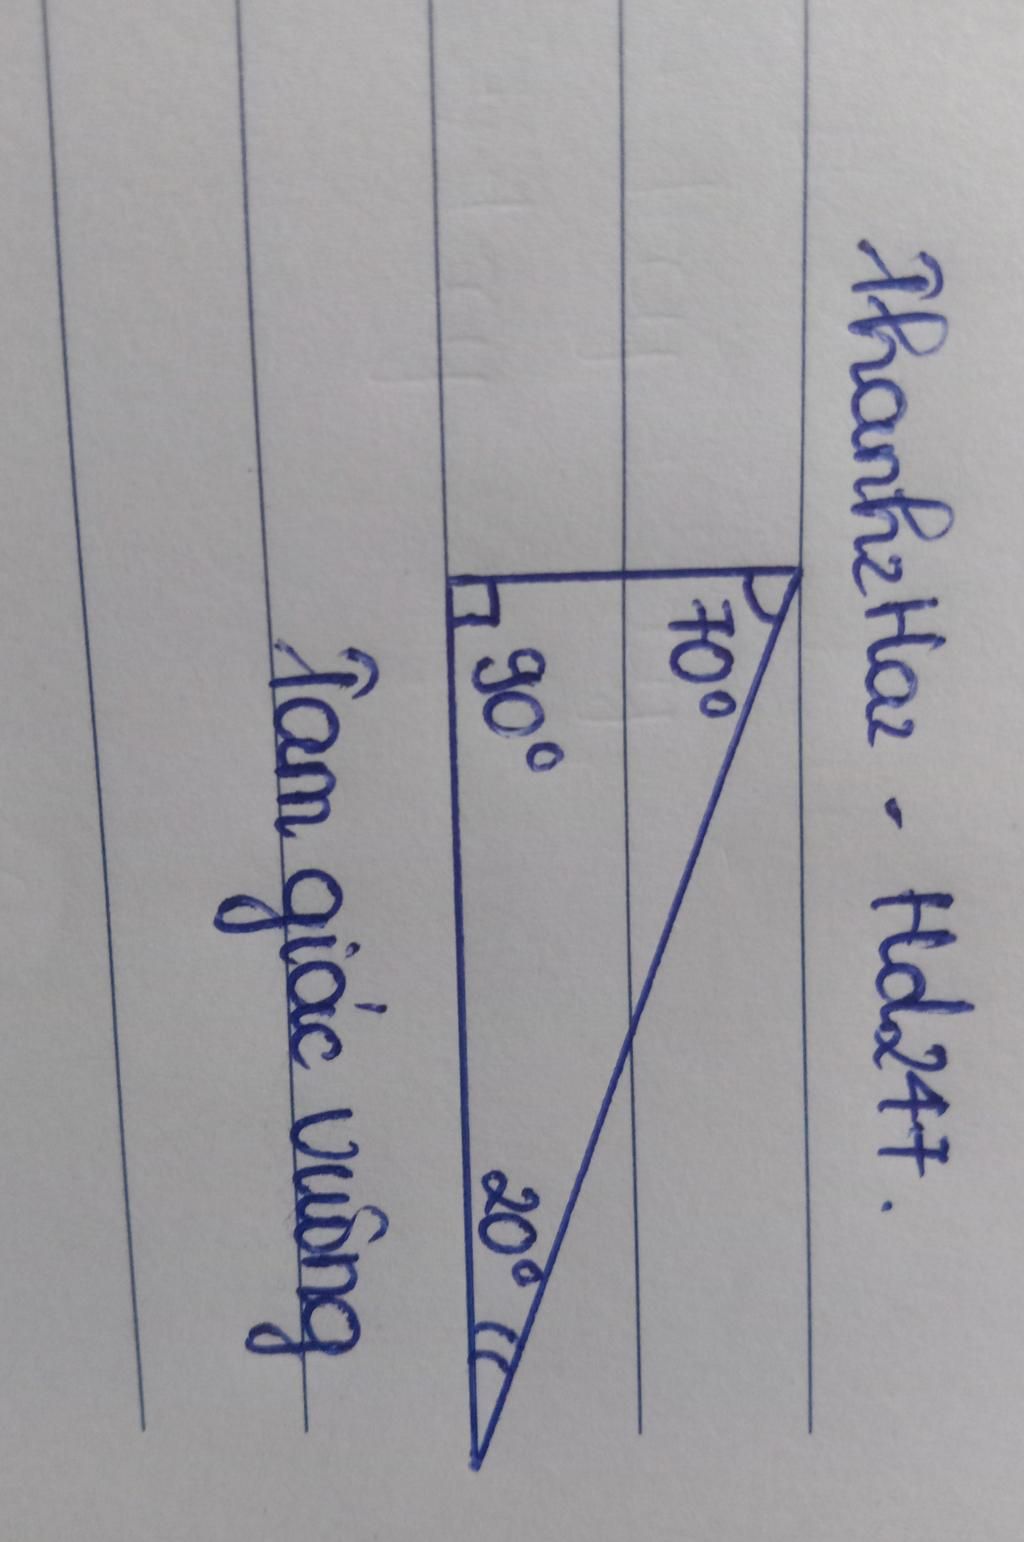 ThanhzHaz - Hd247.
70°
90°
20°
Tam giác vuông